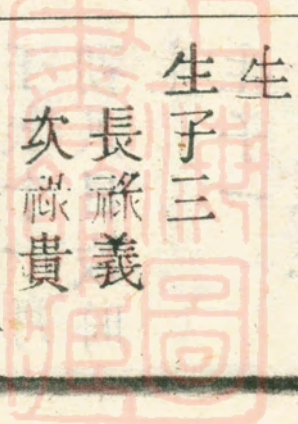 生
生子三
長祿義
次祿貴